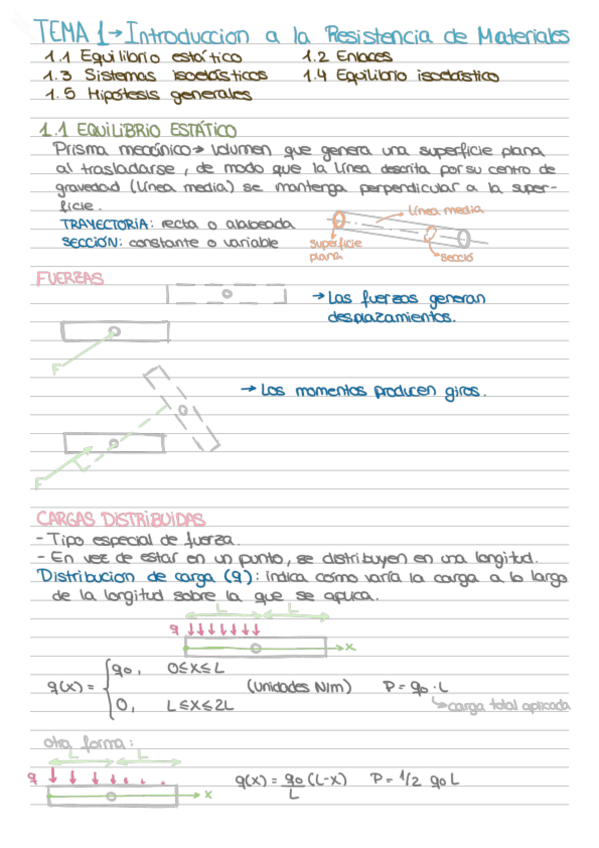 TEMA 1→Introduccion a la Resistencia de Materiales
1.1 Equilibrio estático 1.2 Enlaces
1.3 Sistemas isoelásticos 1.4 Equilibrio isoelástico
1.5 Hipótesis generales
1.1 EQUILIBRIO ESTÁTICO
Prisma mecánico→ volumen que genera una superficie plana
al trasladarse, de modo que la línea descrita por su centro de
gravedad (línea media) se mantenga perpendicular a la super-
ficie.
TRAYECTORIA: recta o alabeada
SECCIÓN: constante o variable
línea media
superficie
plana
secció
FUERZAS
→ Las fuerzas generan
desplazamientos.
F
→ Los momentos producen giros.
F
CARGAS DISTRIBUIDAS
- Tipo especial de fuerza.
- En vez de estar en un punto, se distribuyen en una longitud.
Distribucion de carga (q): indica cómo varía la carga a lo largo
de la longitud sobre la que se aplica.
L L
q
x
q(x) = { q0, 0≤x≤L
0, L≤x≤2L
(Unidades N/m) P = q0 · L
carga total aplicada
otra forma:
L L
q
x
q(x) = q0/L (L-x) P = 1/2 q0 L